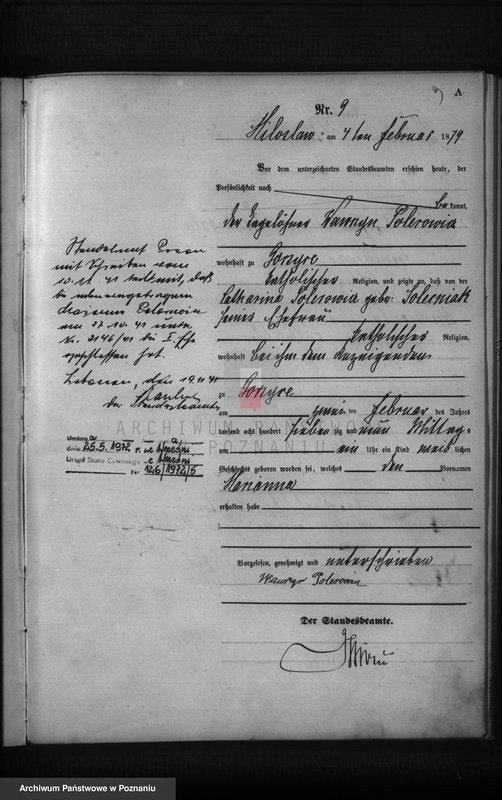 A
Nr. 9
Miloslaw am 4ten Februar 1879
Vor dem unterzeichneten Standesbeamten erschien heute, der
Persönlichkeit nach
be kannt,
der Tagelöhner Wawrzyn
wohnhaft zu
katholischer Religion, und zeigte an, daß von der
Catharina geb.
seiner Ehefrau
katholischer Religion,
wohnhaft bei ihm dem Anzeigenden
zu
am zweiten Februar des Jahres
tausend acht hundert siebenzig und neun Mittag
um Uhr ein Kind weib lichen
Geschlechts geboren worden sei, welches den Vornamen
Marianna
erhalten habe
Vorgelesen, genehmigt und unterschrieben
Wawrzyn
Der Standesbeamte.
Standesamt Posen
mit Schreiben vom
10.11.41 teilt mit, daß
die nebeneingetragene
am 27.10.41 unter
N. 2146/41 die I Ehe
geschlossen hat.
den 19.11.41
der Standesbeamte
dnia 25.5.1972 r. we Wrześni
Urząd Stanu Cywilnego we Wrześni
Nr 126/1972/5
ARCHIWUM PAŃSTWOWE
W POZNANIU
Archiwum Państwowe w Poznaniu